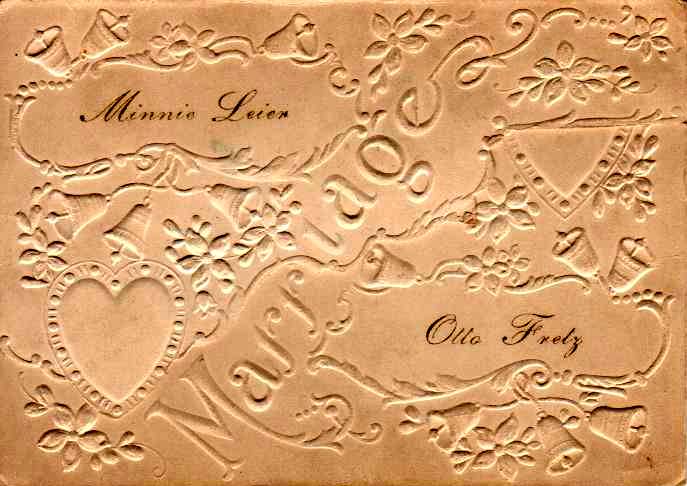 Minnie Leier
Marriage
Otto Fretz